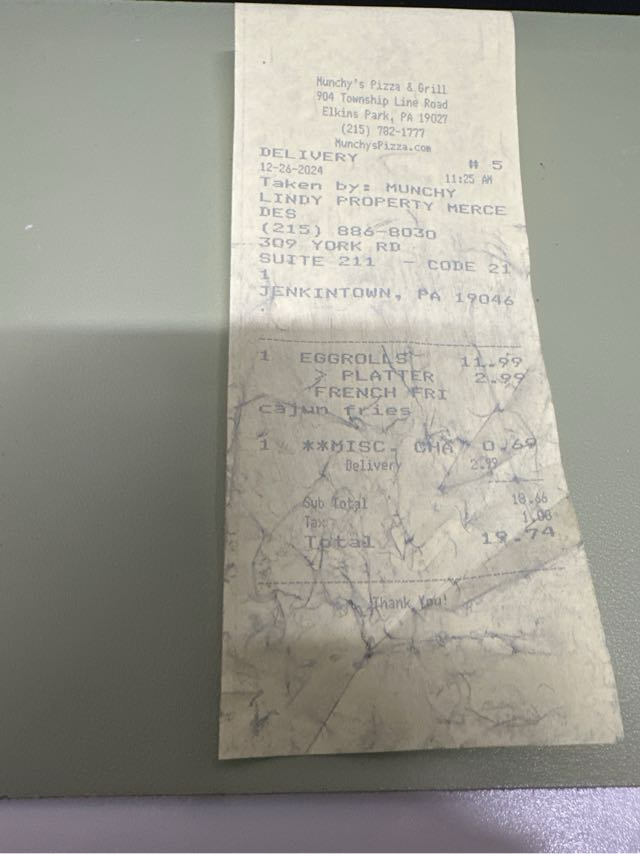 Munchy's Pizza & Grill
904 Township Line Road
Elkins Park, PA 19027
(215) 782-1777
MunchysPizza.com
DELIVERY # 5
12-26-2024 11:25 AM
Taken by: MUNCHY
LINDY PROPERTY MERCE
DES
(215) 886-8030
309 YORK RD
SUITE 211 - CODE 21
1
JENKINTOWN, PA 19046
.
1 EGGROLLS 11.99
> PLATTER 2.99
FRENCH FRI
cajun fries
1 **MISC. CHA 0.69
Delivery 2.99
Sub Total 18.66
Tax 1.08
Total 19.74
Thank You!